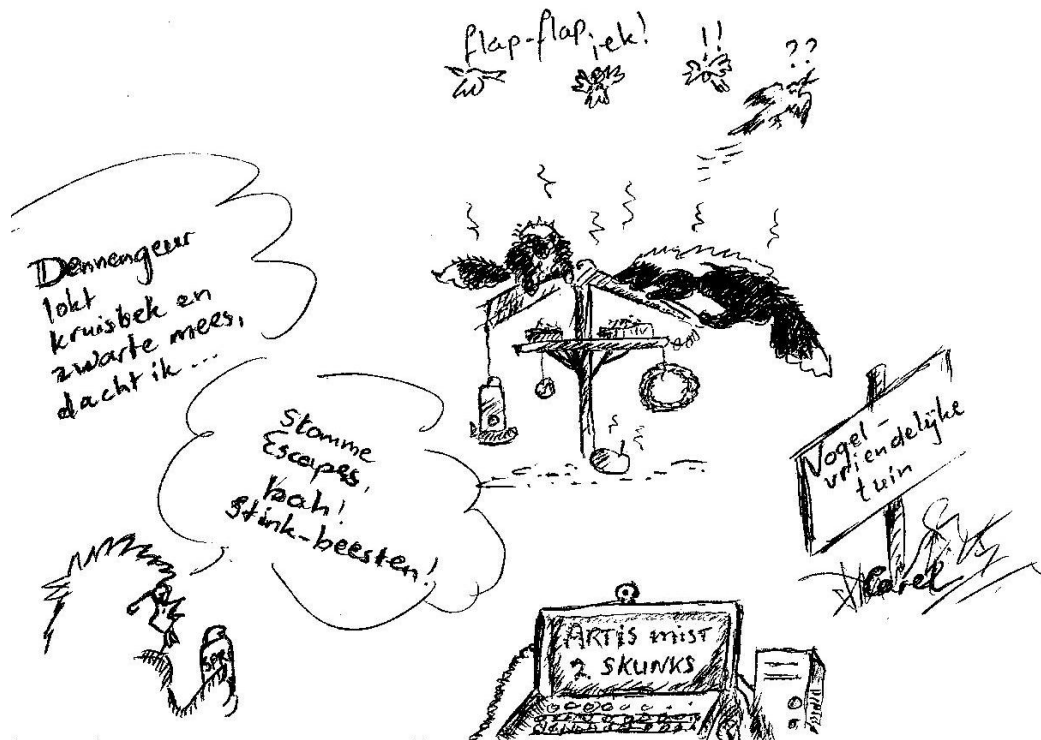 flap-flap, iek!
!!
??
Dennengeur
lokt
kruisbek en
zwarte mees,
dacht ik...
Stomme
Escapes,
bah!
Stink-beesten!
Vogel-
vriendelijke
tuin
Karel
SPR
ARTIS mist
2 SKUNKS